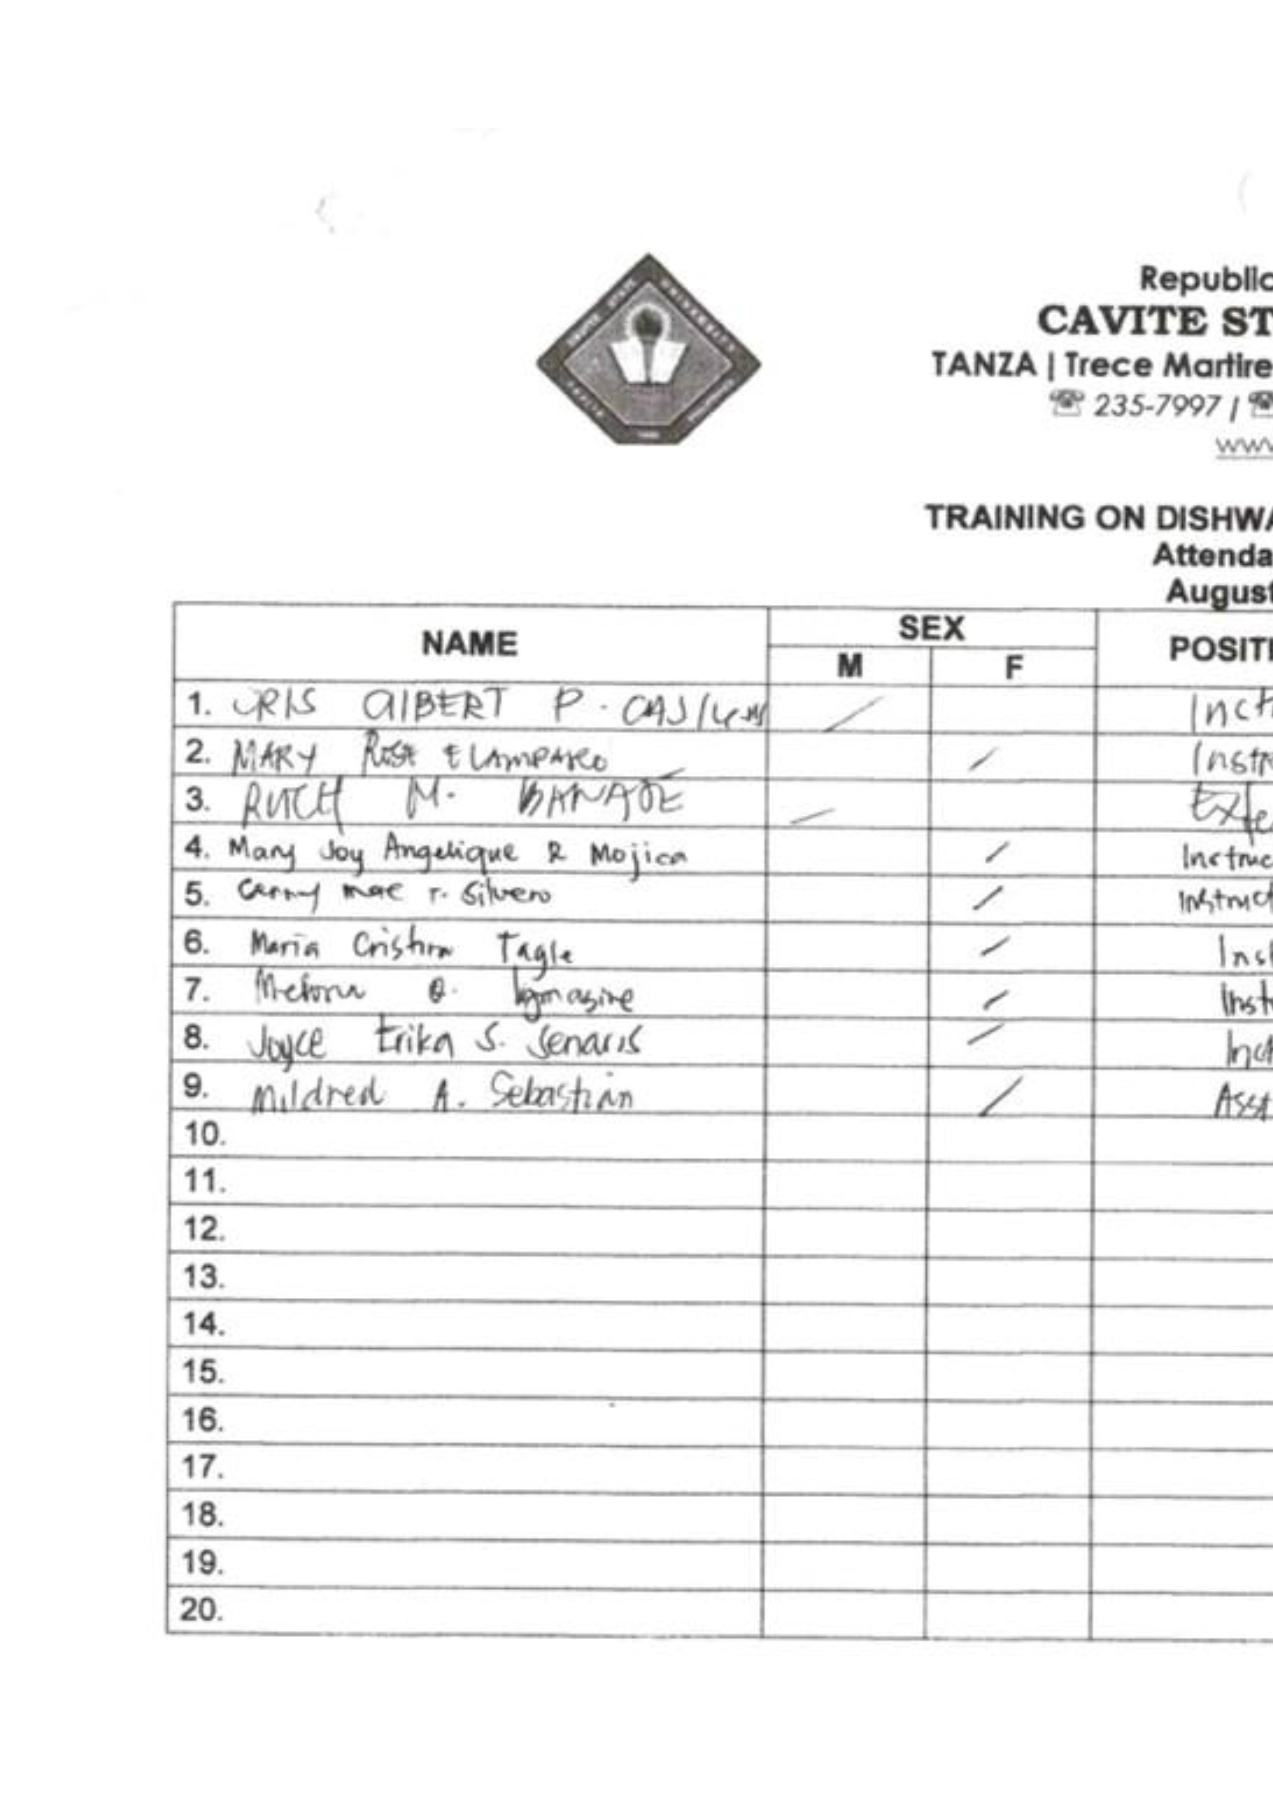 Republic
CAVITE ST
TANZA | Trece Martire
☎ 235-7997 / ☎
www
TRAINING ON DISHWA
Attenda
August
NAME SEX POSITI
M F
1. CRIS AlBERT P.
2. MARY ROSE ELAMPARO Instr
3. M. BANATE Exte
4. Mary Joy Angelique R Mojica Instruc
5. mae T. Silvero Instruct
6. Maria Cristina Tagle Inst
7. Instr
8. Joyce Erika S. Senaris Inst
9. Mildred A. Sebastian Asst
10.
11.
12.
13.
14.
15.
16.
17.
18.
19.
20.